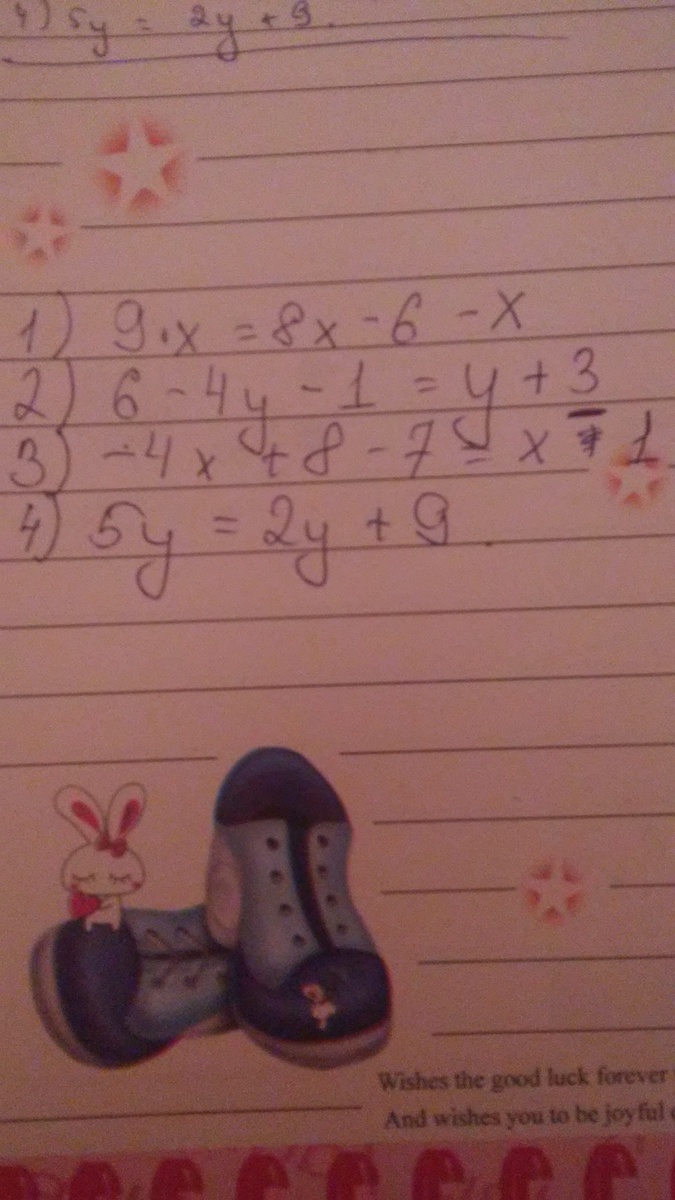 4) 5y = 2y + 9.
1) 9·x = 8x - 6 - x
2) 6 - 4y - 1 = y + 3
3) -4x + 8 - 7 = x - 1
4) 5y = 2y + 9.
Wishes the good luck forever
And wishes you to be joyful